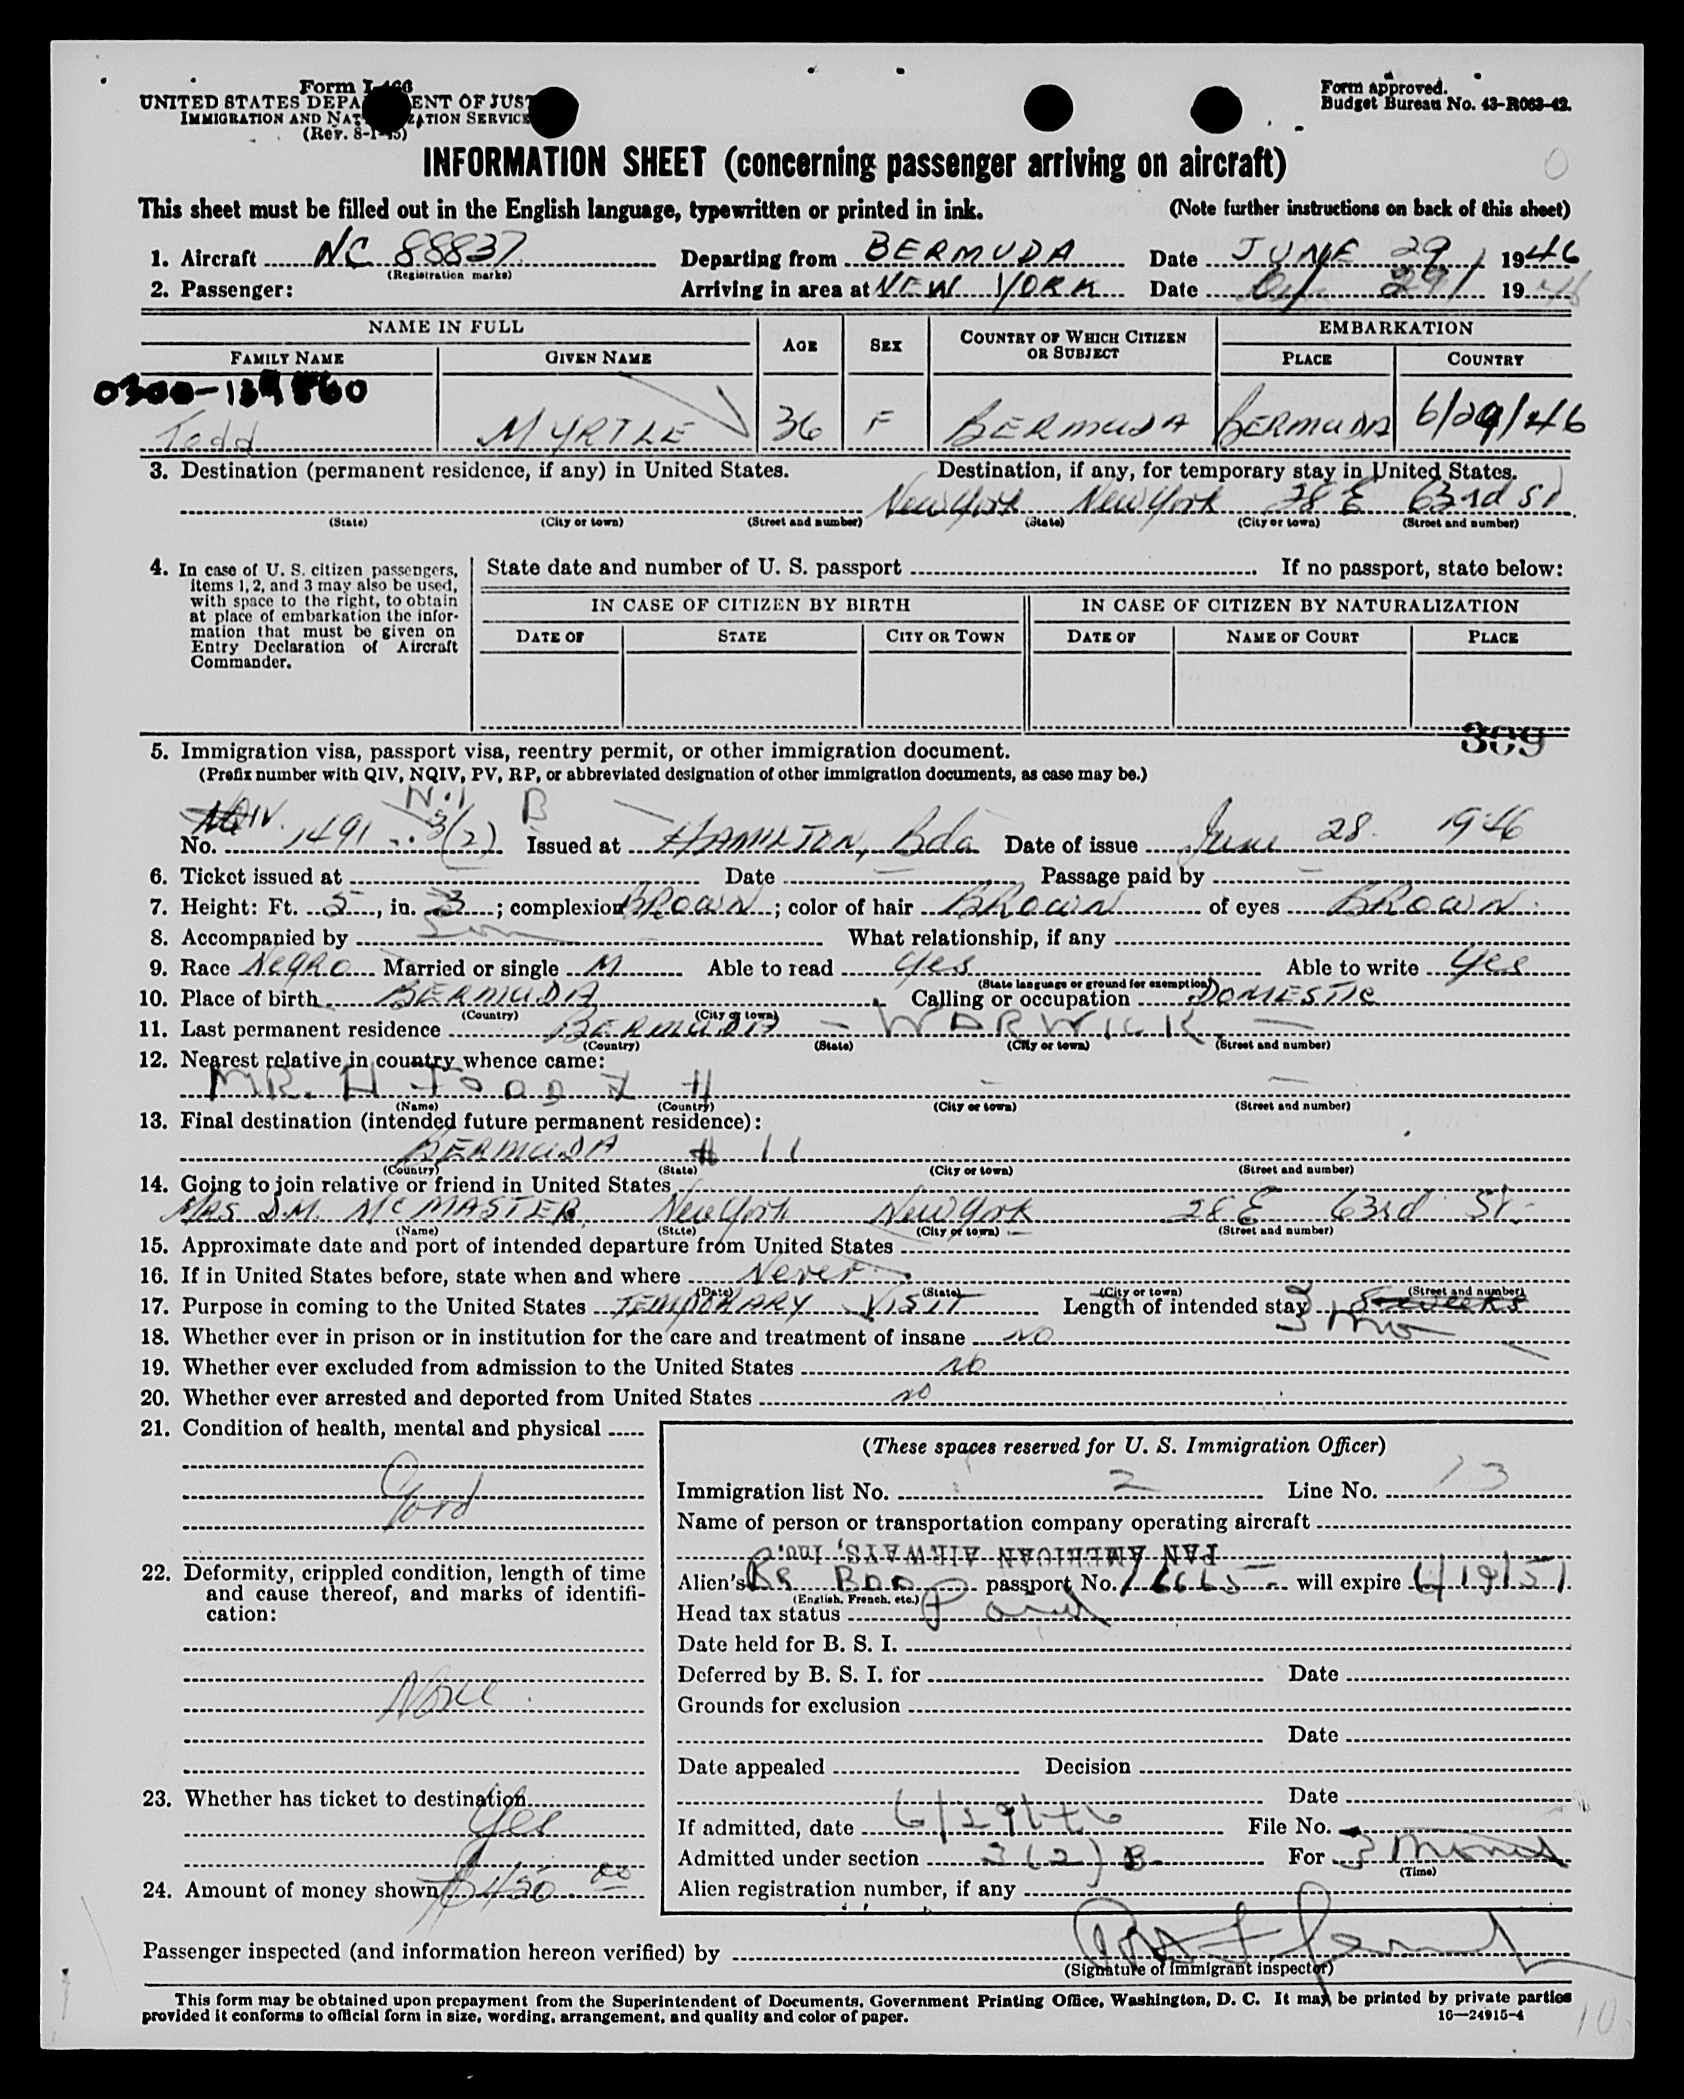 Form I-466
UNITED STATES DEPARTMENT OF JUSTICE
IMMIGRATION AND NATURALIZATION SERVICE
(Rev. 8-1-45)
Form approved.
Budget Bureau No. 43-R063-42.
INFORMATION SHEET (concerning passenger arriving on aircraft)
This sheet must be filled out in the English language, typewritten or printed in ink. (Note further instructions on back of this sheet)
1. Aircraft NC 88837 Departing from BERMUDA Date JUNE 29, 1946
(Registration marks)
2. Passenger: Arriving in area at NEW YORK Date 6/ 29/ 1946
NAME IN FULL AGE SEX COUNTRY OF WHICH CITIZEN OR SUBJECT EMBARKATION
FAMILY NAME GIVEN NAME PLACE COUNTRY
0300-
Todd MYRTLE 36 F BERMUDA BERMUDA 6/29/46
3. Destination (permanent residence, if any) in United States. Destination, if any, for temporary stay in United States.
New York New York 28 E 63rd St
(State) (City or town) (Street and number) (State) (City or town) (Street and number)
4. In case of U. S. citizen passengers, items 1, 2, and 3 may also be used, with space to the right, to obtain at place of embarkation the information that must be given on Entry Declaration of Aircraft Commander.
State date and number of U. S. passport If no passport, state below:
IN CASE OF CITIZEN BY BIRTH IN CASE OF CITIZEN BY NATURALIZATION
DATE OF STATE CITY OR TOWN DATE OF NAME OF COURT PLACE
309
5. Immigration visa, passport visa, reentry permit, or other immigration document.
(Prefix number with QIV, NQIV, PV, RP, or abbreviated designation of other immigration documents, as case may be.)
B
No. 1491 3(2) Issued at HAMILTON, Bda Date of issue June 28 1946
6. Ticket issued at Date Passage paid by
7. Height: Ft. 5, in. 3; complexion BROWN; color of hair BROWN of eyes BROWN
8. Accompanied by What relationship, if any
9. Race Negro Married or single M Able to read yes Able to write yes
(State language or ground for exemption)
10. Place of birth BERMUDA Calling or occupation DOMESTIC
(Country) (City or town)
11. Last permanent residence BERMUDA - WARWICK -
(Country) (State) (City or town) (Street and number)
12. Nearest relative in country whence came:
MR. H TODD H
(Name) (Country) (City or town) (Street and number)
13. Final destination (intended future permanent residence):
BERMUDA # 11
(Country) (State) (City or town) (Street and number)
14. Going to join relative or friend in United States
MRS D.M. MCMASTER New York New York 28 E 63rd St.
(Name) (State) (City or town) (Street and number)
15. Approximate date and port of intended departure from United States
16. If in United States before, state when and where Never
(Date) (State) (City or town) (Street and number)
17. Purpose in coming to the United States TEMPORARY VISIT Length of intended stay 8 weeks
3 mo
18. Whether ever in prison or in institution for the care and treatment of insane NO
19. Whether ever excluded from admission to the United States no
20. Whether ever arrested and deported from United States no
21. Condition of health, mental and physical
Good
22. Deformity, crippled condition, length of time and cause thereof, and marks of identification:
None
23. Whether has ticket to destination
Yes
24. Amount of money shown $450 00
(These spaces reserved for U. S. Immigration Officer)
Immigration list No. 2 Line No. 13
Name of person or transportation company operating aircraft
PAN AMERICAN AIRWAYS, Inc.
Alien's Br Bda passport No. 16665 will expire 4/19/51
(English, French, etc.)
Head tax status
Date held for B. S. I.
Deferred by B. S. I. for Date
Grounds for exclusion
Date
Date appealed Decision
Date
If admitted, date 6/29/46 File No.
Admitted under section 3(2) B For 3 months
(Time)
Alien registration number, if any
Passenger inspected (and information hereon verified) by
(Signature of immigrant inspector)
This form may be obtained upon prepayment from the Superintendent of Documents, Government Printing Office, Washington, D. C. It may be printed by private parties
provided it conforms to official form in size, wording, arrangement, and quality and color of paper. 16—24915-4
10